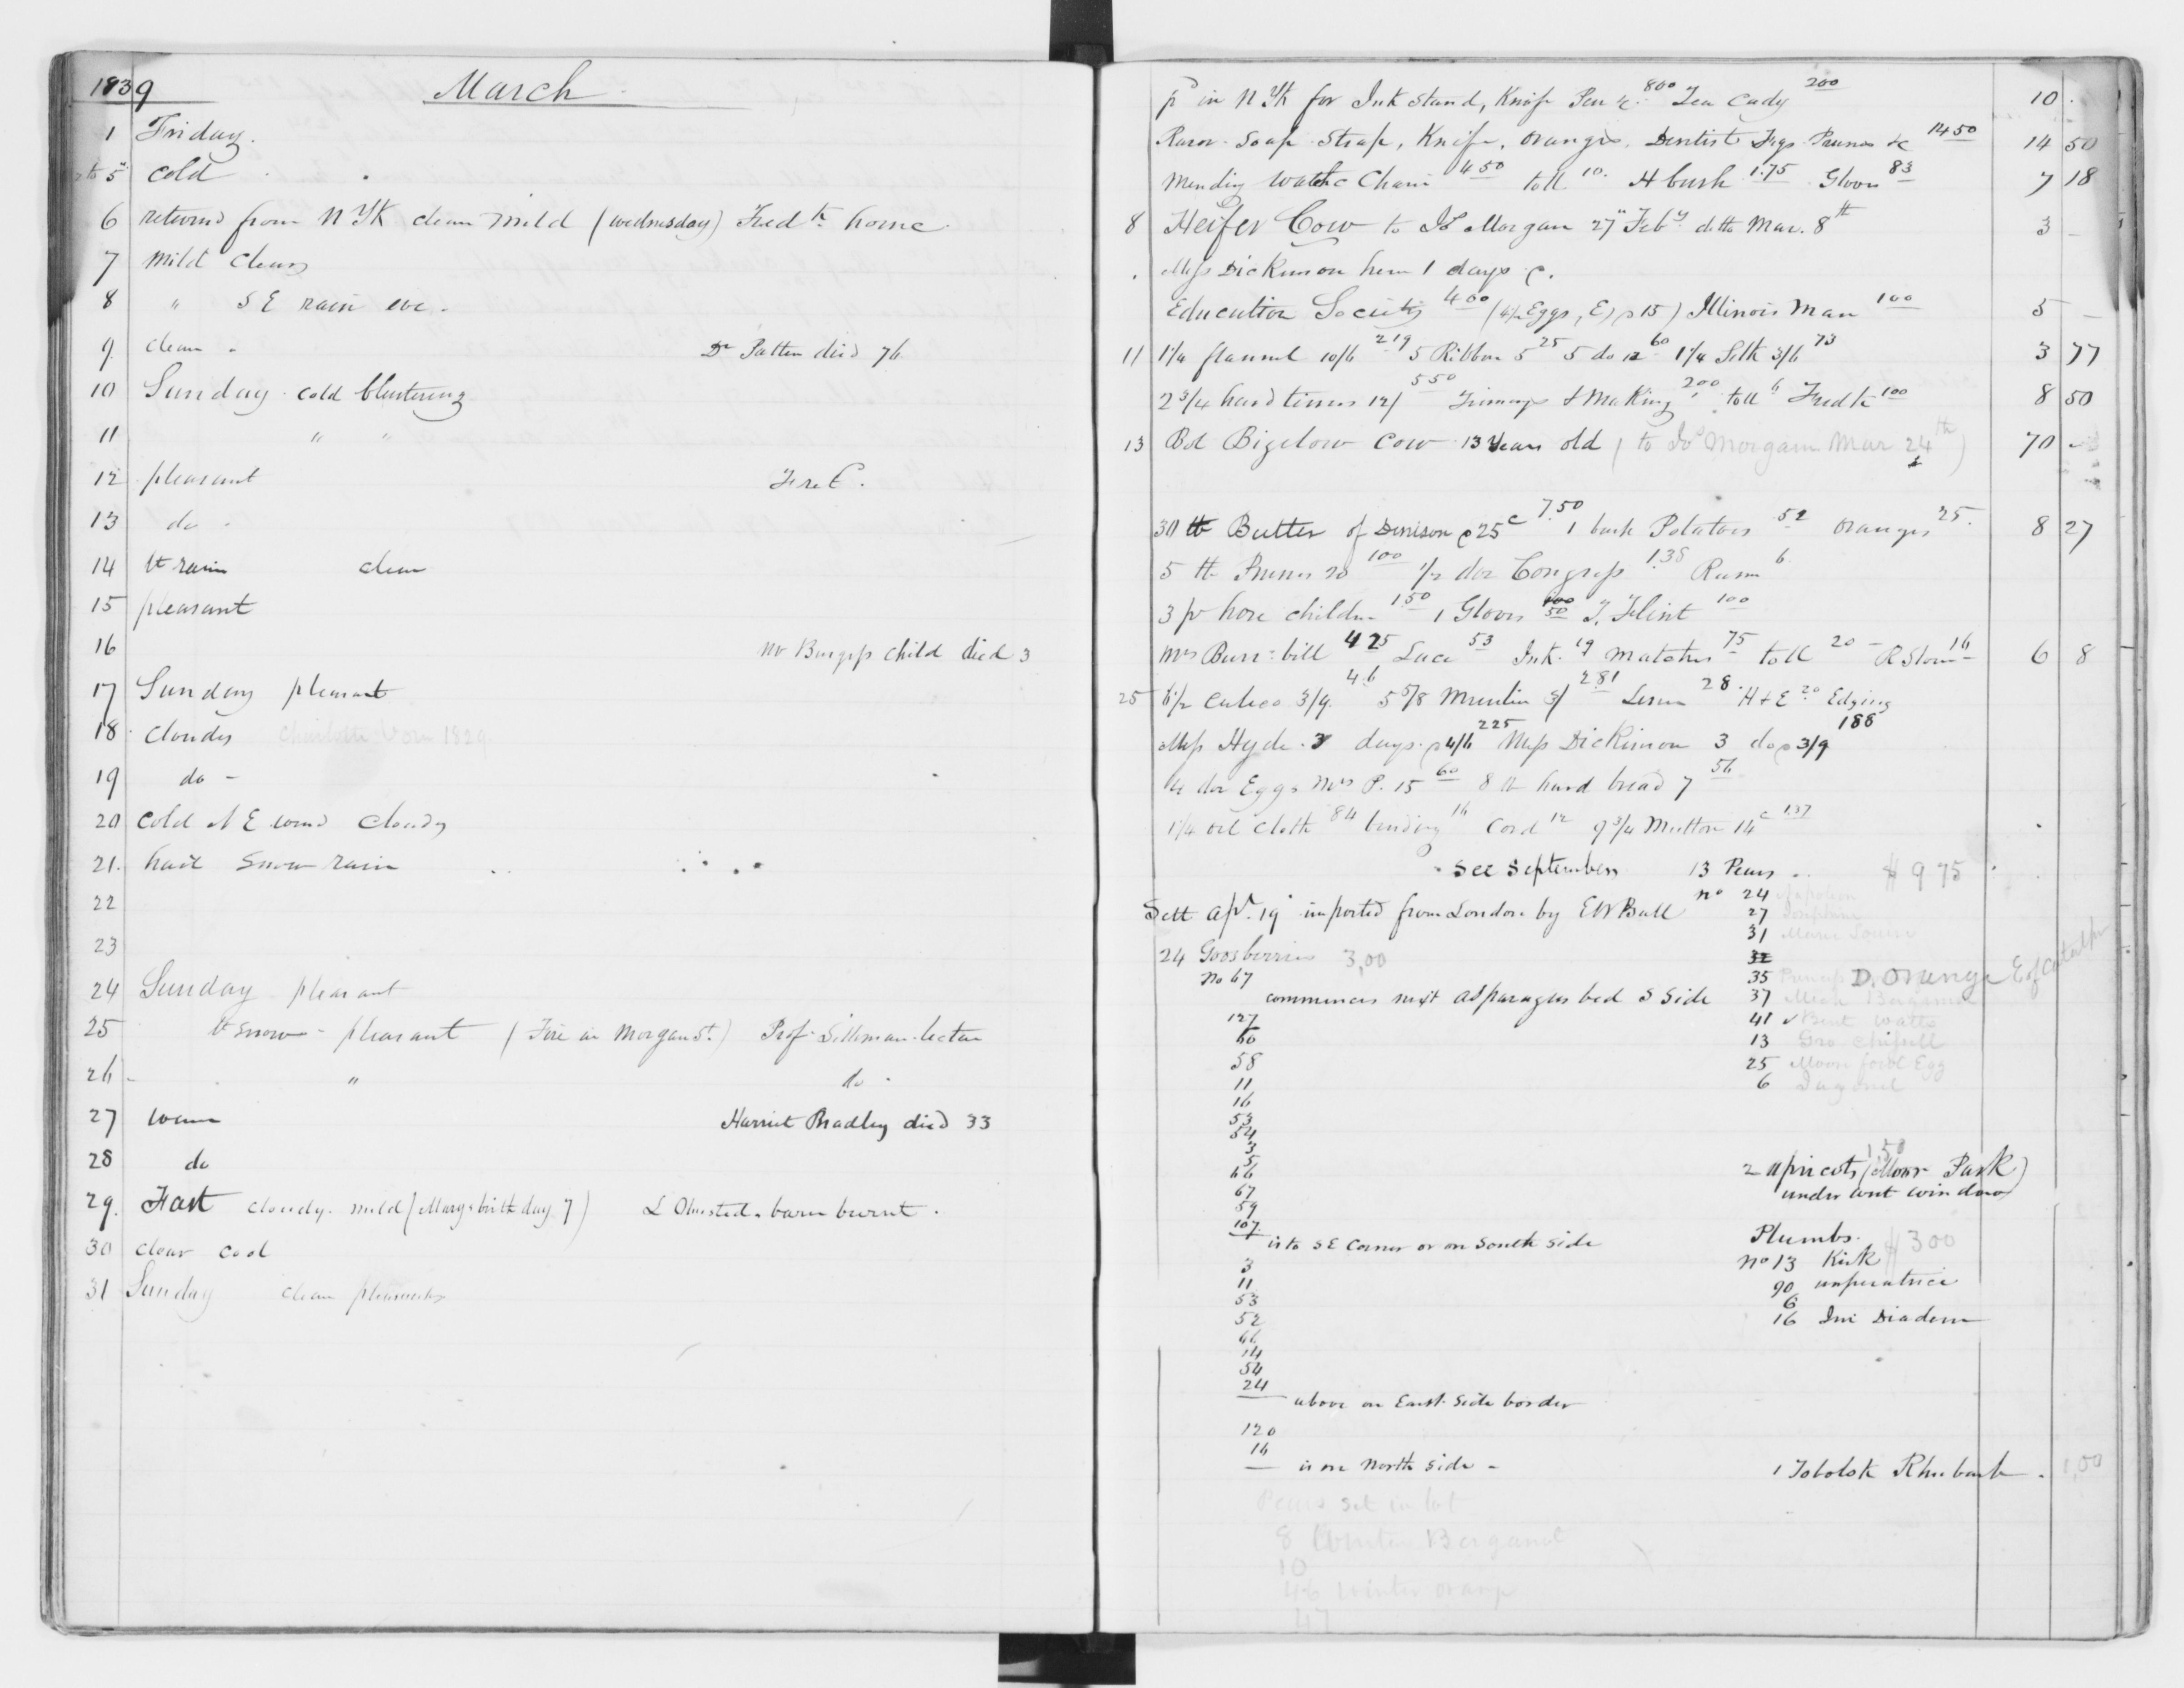 1839 March
1 Friday.
2 to 5 cold
6 returned from N Yk clear mild (wednesday) Fredk home
7 mild clear
8 " S E rain eve -
9 clear - Dr Patten died 76
10 Sunday cold blustering
11 " "
12 pleasant Fire C.
13 do -
14 lt rain clear
15 pleasant
16 Mr Burgess child died 3
17 Sunday pleasant
18 cloudy Charlotte born 1829
19 do -
20 cold N E wind cloudy
21. hail snow rain
22
23
24 Sunday pleasant
25 lt snow - pleasant (Fire in Morgan St.) Prof Silliman lecture
26 - " do -
27 warm Harriet Bradley died 33
28 do
29. Fast cloudy. mild (Marys birth day 7) L Olmsted. barn burnt.
30 clear cool
31 Sunday clear pleasant
pd in N Yk for Ink stand, Knife Pen &c. 800 Tea Cady 200 10
Razor Soap Strap, Knife, oranges, Dentist Figs Prunes &c 1450 14 50
Mending watch Chain 450 toll 10. H bush 1.75 Gloves 83 7 18
8 Heifer Cow to Jos Morgan 27" Feby ditto Mar. 8th 3 -
Miss Dickinson here 1 days
Education Society 400 (4/ Eggs, E, 15) Illinois Man 100 5 -
11 1 1/4 flannel 10/6 219 5 Ribbon 5 25 5 do 12 60 1 1/4 Silk 3/6 73 3 77
2 3/4 hard times 12/ 550 Trimings & Making 200 toll 6 Fredk 100 8 50
13 Bot Bigelow Cow 13 Years old (to Jos Morgan Mar 24th) 70 -
30 lb Butter of Denison @ 25c 7.50 1 bush Potatoes 52 oranges 25. 8 27
5 lb Prunes 20 100 1/2 doz Congress 1.38 Rum 6
3 pr hose children 1.50 1 Gloves 50 T. Flint 100
Mrs Burr bill 425 Lace 53 Ink. 19 matches 75 toll 20 - 16 6 8
25 calico 3/9. 4.6 5 5/8 Muslin 3/ 281 28. H & E 20 Edging
Miss Hyde 3 days @ 4/6 225 Miss Dickinson 3 do @ 3/9 188
4 doz Eggs Mrs P. 15 60 8 lb hard bread 7 56
1 1/4 oil cloth 84 binding 16 Cord 12 9 3/4 Mutton 14c 137
See September 13 Pears $ 9 75
Sett Apr. 19" imported from London by E W Bull no 24 Napoleon
27 Josephine
31 Marie Louise
24 Goosberries 3,00 32
no 67 35 Princess D. Orange E of Catalpa
commences next asparagus bed S Side 37
127 41 Bent watts
60 13
58 25 Moore fowl Egg
11 6
16
53
54
3
5
66 2 apricots (Moor Park) 1,50
67 under west window
59
107 is to SE Corner or on South side Plumbs. $ 300
3 no 13 Kirk
11 90 imperatrice
53 6
52 16 Imi Diadem
66
14
54
24 above on East Side border
120
16 is on North side - 1 Tobolsk Rhubarb. 1,00
Pears set in lot
8 Bergamot
10
46 winter orange
47